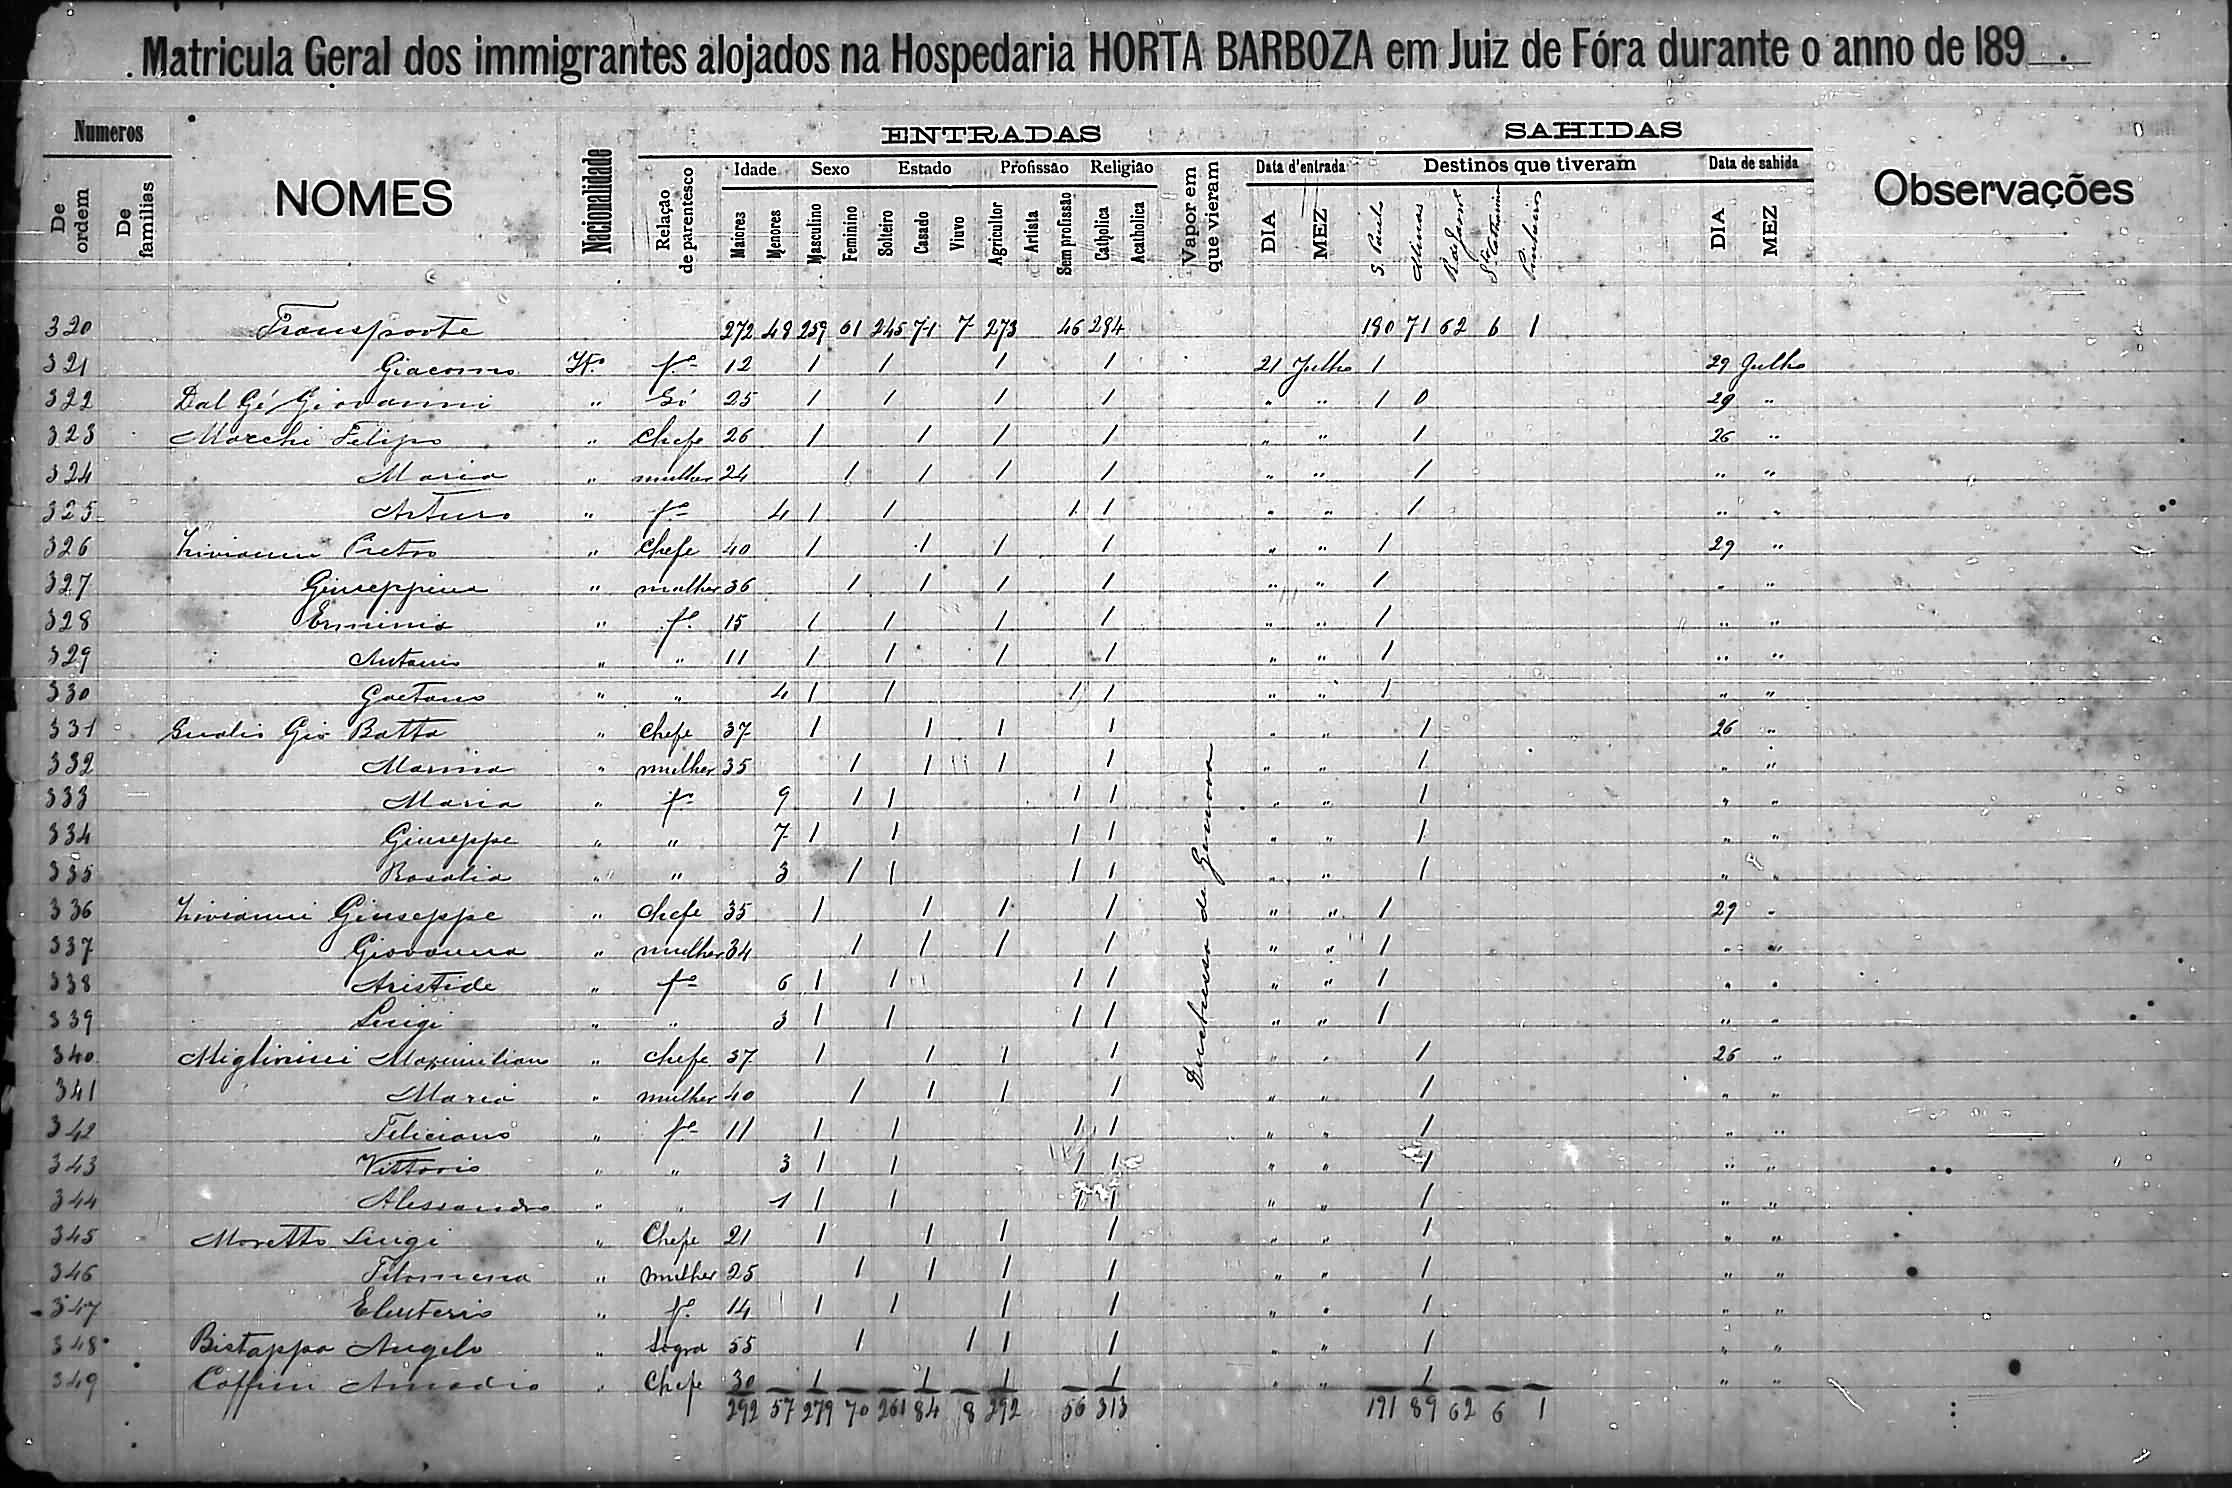 Matricula Geral dos immigrantes alojados na Hospedaria HORTA BARBOZA em Juiz de Fóra durante o anno de 189
Numeros ENTRADAS SAHIDAS
De ordem De familias NOMES Nacionalidade Relação de parentesco Idade Sexo Estado Profissão Religião Vapor em que vieram Data d'entrada Destinos que tiveram Data de sahida Observações
Maiores Menores Masculino Feminino Solteiro Casado Viuvo Agricultor Artista Sem profissão Catholica Acatholica DIA MEZ S. Paulo Minas DIA MEZ
320 Transporte 272 48 259 61 245 71 7 273 46 284 180 71 62 6 1
321 Giacomo It.º fº 12 1 1 1 1 21 Julho 1 29 Julho
322 Dal Gé Giovanni " Só 25 1 1 1 1 " " 1 0 29 "
323 Marchi Felipo " Chefe 26 1 1 1 1 " " 1 26 "
324 Maria " mulher 24 1 1 1 1 " " 1 " "
325 Arturo " fº 4 1 1 1 1 " " 1 " "
326 Livianni Pietro " Chefe 40 1 1 1 1 " " 1 29 "
327 Giuseppina " mulher 36 1 1 1 1 " " 1 " "
328 Erminio " fº 15 1 1 1 1 " " 1 " "
329 Antonio " " 11 1 1 1 1 " " 1 " "
330 Gaetano " " 4 1 1 1 1 " " 1 " "
331 Gio Batta " Chefe 37 1 1 1 1 " " 1 26 "
332 Marina " mulher 35 1 1 1 1 " " 1 " "
333 Maria " fª 9 1 1 1 1 " " 1 " "
334 Giuseppe " " 7 1 1 1 1 " " 1 " "
335 Rosalia " " 3 1 1 1 1 " " 1 " "
336 Livianni Giuseppe " Chefe 35 1 1 1 1 " " 1 29 "
337 Giovanna " mulher 34 1 1 1 1 " " 1 " "
338 Aristide " fº 6 1 1 1 1 " " 1 " "
339 Luigi " " 3 1 1 1 1 " " 1 " "
340 Migliorini Maximiliano " Chefe 37 1 1 1 1 " " 1 26 "
341 Maria " mulher 40 1 1 1 1 " " 1 " "
342 Feliciano " fº 11 1 1 1 1 " " 1 " "
343 Vittorio " " 3 1 1 1 1 " " 1 " "
344 Alessandro " " 1 1 1 1 1 " " 1 " "
345 Moretto Luigi " Chefe 21 1 1 1 1 " " 1 " "
346 Filomena " mulher 25 1 1 1 1 " " 1 " "
347 Eleuterio " fº 14 1 1 1 1 " " 1 " "
348 Bistappa Angelo " Sogra 55 1 1 1 1 " " 1 " "
349 Coffini Amadio " Chefe 30 1 1 1 1 " " 1 " "
292 57 279 70 261 84 8 292 56 313 191 89 62 6 1
Duchessa de Genova